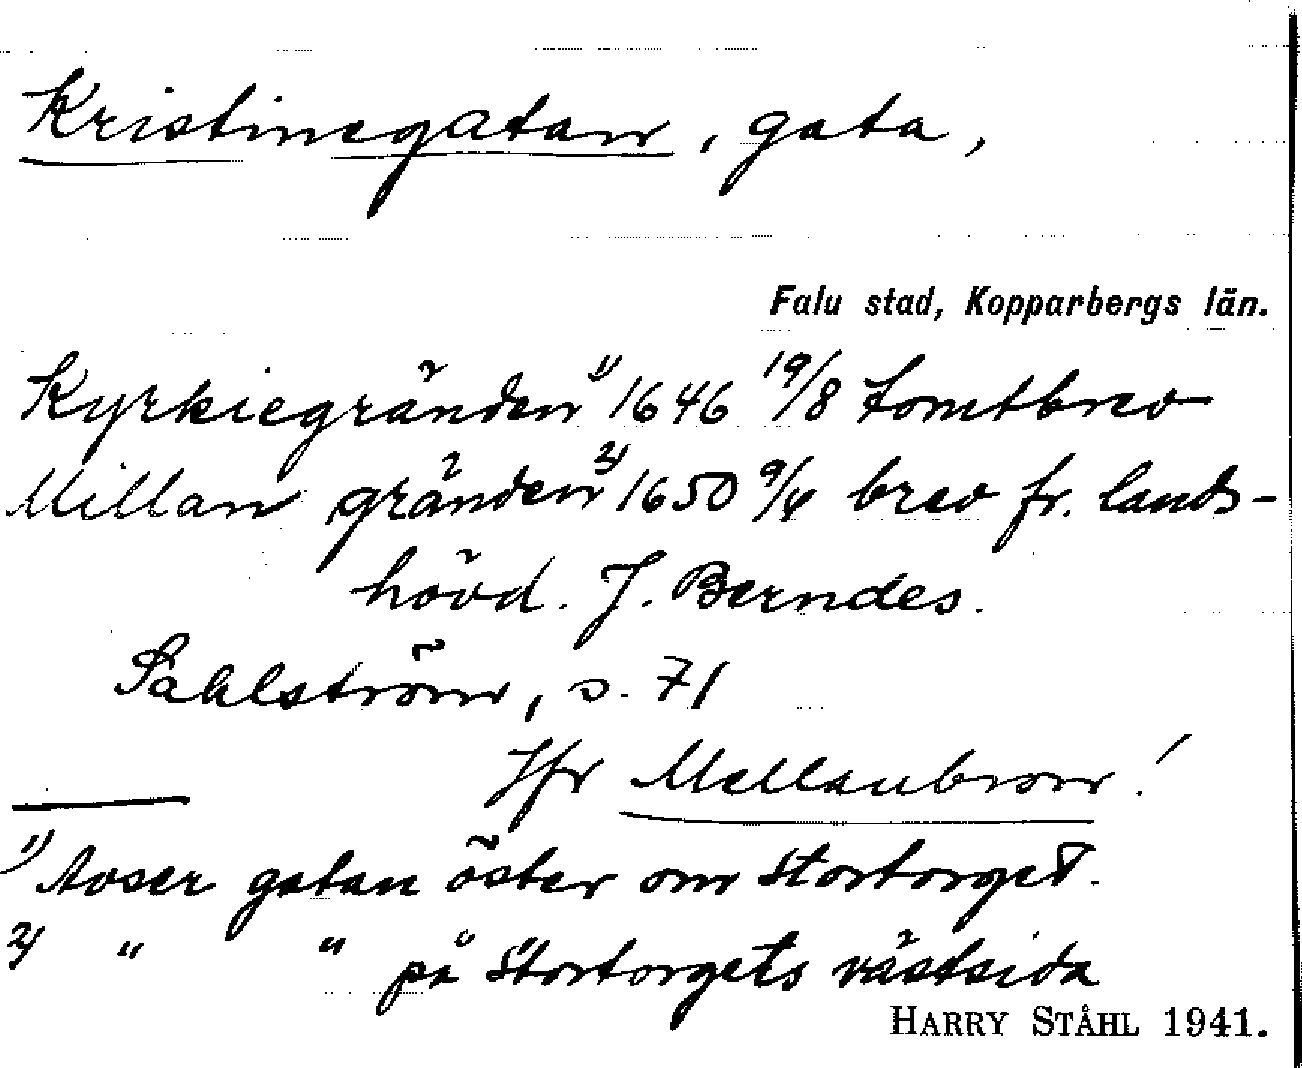 Kristinegatan, gata,
Falu stad, Kopparbergs län.
Kyrkiegränden 1) 1646 19/8 tomtbrev
Millan gränden 2) 1650 9/4 brev fr. lands-
hövd. J. Berndes.
Sahlström, s. 71
Jfr Mellanbron!
1) Avser gatan öster om Stortorget.
2) " " på Stortorgets västsida
HARRY STÅHL 1941.